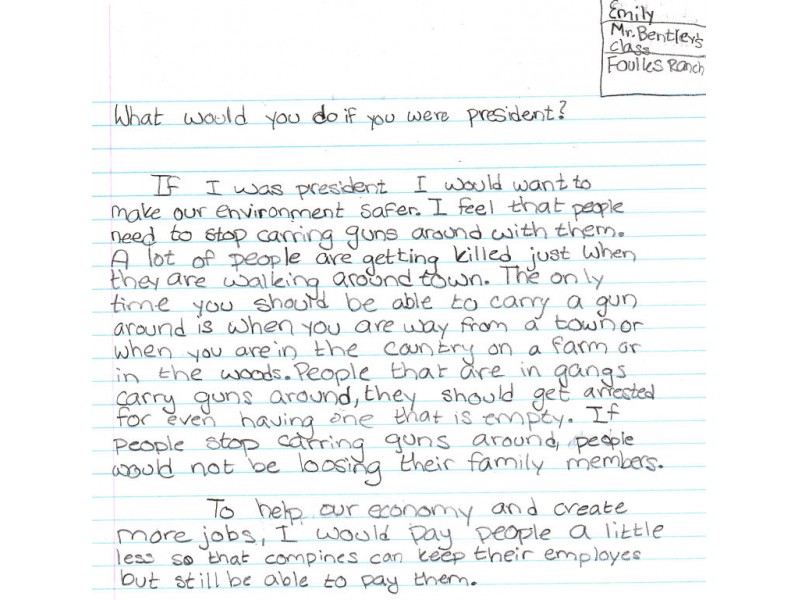 Emily
Mr. Bentley's
class
Foulks Ranch
What would you do if you were president?
If I was president I would want to
make our environment safer. I feel that people
need to stop carring guns around with them.
A lot of people are getting killed just when
they are walking around town. The only
time you should be able to carry a gun
around is when you are way from a town or
when you are in the country on a farm or
in the woods. People that are in gangs
carry guns around, they should get arrested
for even having one that is empty. If
people stop carring guns around, people
would not be loosing their family members.
To help our economy and create
more jobs, I would pay people a little
less so that compines can keep their employes
but still be able to pay them.